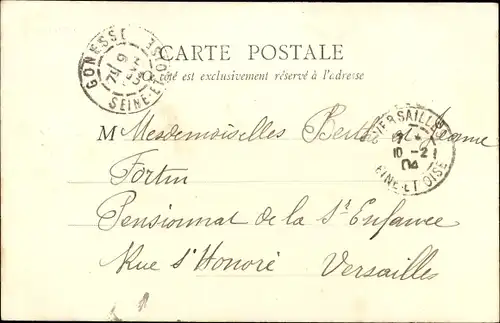 CARTE POSTALE
côté est exclusivement réservé à l'adresse
GONESSE
SEINE-ET-OISE
VERSAILLES
10-2
04
SEINE-ET-OISE
M Mesdemoiselles Berthe et Jeanne
Fortin
Pensionnat de la Ste Enfance
Rue St Honoré Versailles